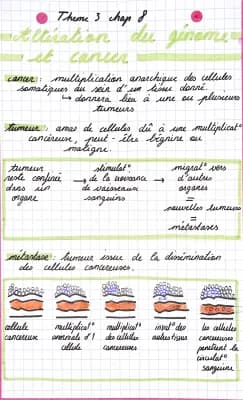 Theme 3 chap 8
Altération du génome
et cancer
cancer : multiplication anarchique des cellules
somatiques au sein d'un tissu donné.
↳ donnera lieu à une ou plusieurs
tumeurs
tumeur : amas de cellules dû à une multiplicat°
cancéreuse, peut-être bégnine ou
maligne.
tumeur
reste confinée
dans un
organe
→
stimulat°
de la naissance
de vaisseaux
sanguins
→
migrat° vers
d'autres
organes
=
nouvelles tumeurs
=
métastases
métastase : tumeur issue de la dissémination
des cellules cancéreuses.
cellule
cancéreuse
multiplicat°
anormale d'1
cellule
multiplicat°
des cellules
cancéreuses
invas° des
autres tissus
les cellules
cancéreuses
pénètrent la
circulat°
sanguine